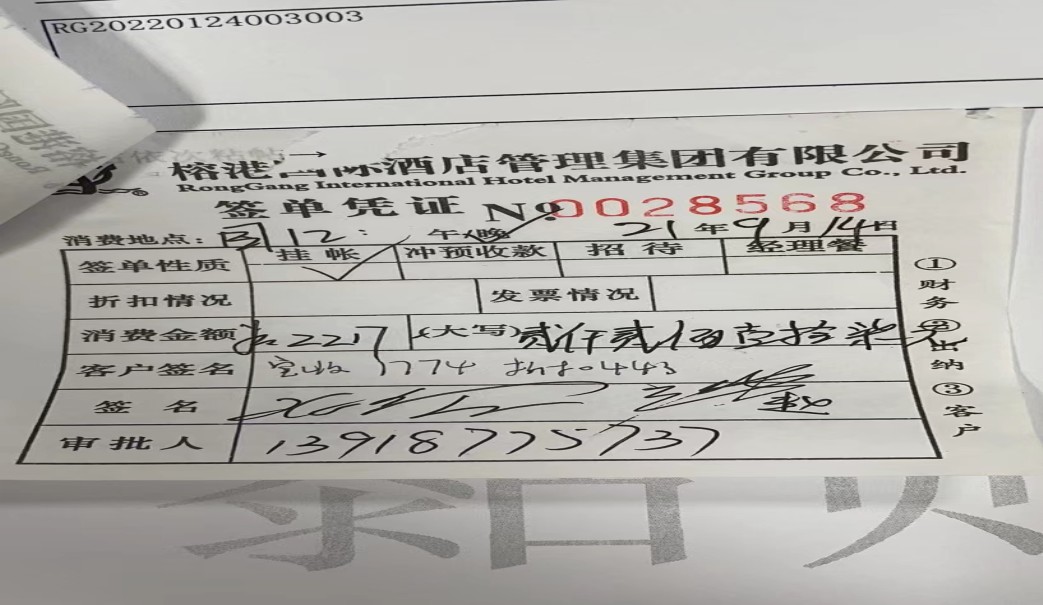 RG20220124003003
榕港国际酒店管理集团有限公司
RongGang International Hotel Management Group Co., Ltd.
签单凭证 No 0028568
消费地点: 312: 午 晚 21年9月14日
签单性质 挂帐 冲预收款 招待 经理餐
折扣情况 发票情况
消费金额 2217 (大写) 贰仟贰佰壹拾柒元
客户签名 实收1774 折扣443
签名
审批人 13918775737
①财务 ②出纳 ③客户